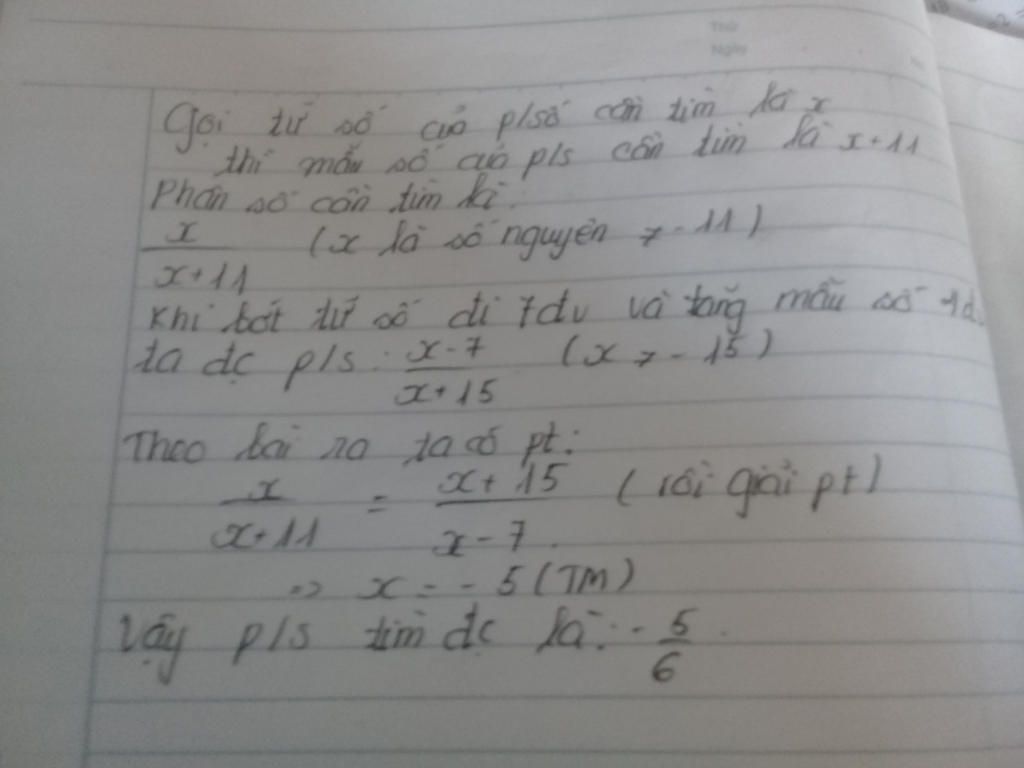 Thứ
Ngày
Gọi tử số của p/số cần tìm là x
thì mẫu số của p/s cần tìm là x+11
Phân số cần tìm là:
x/(x+11) (x là số nguyên > -11)
Khi bớt tử số đi 7đv và tăng mẫu số 4đv
ta đc p/s: (x-7)/(x+15) (x > -15)
Theo bài ra ta có pt:
x/(x+11) = (x+15)/(x-7) (rồi giải pt)
=> x = -5 (TM)
Vậy p/s tìm đc là: -5/6